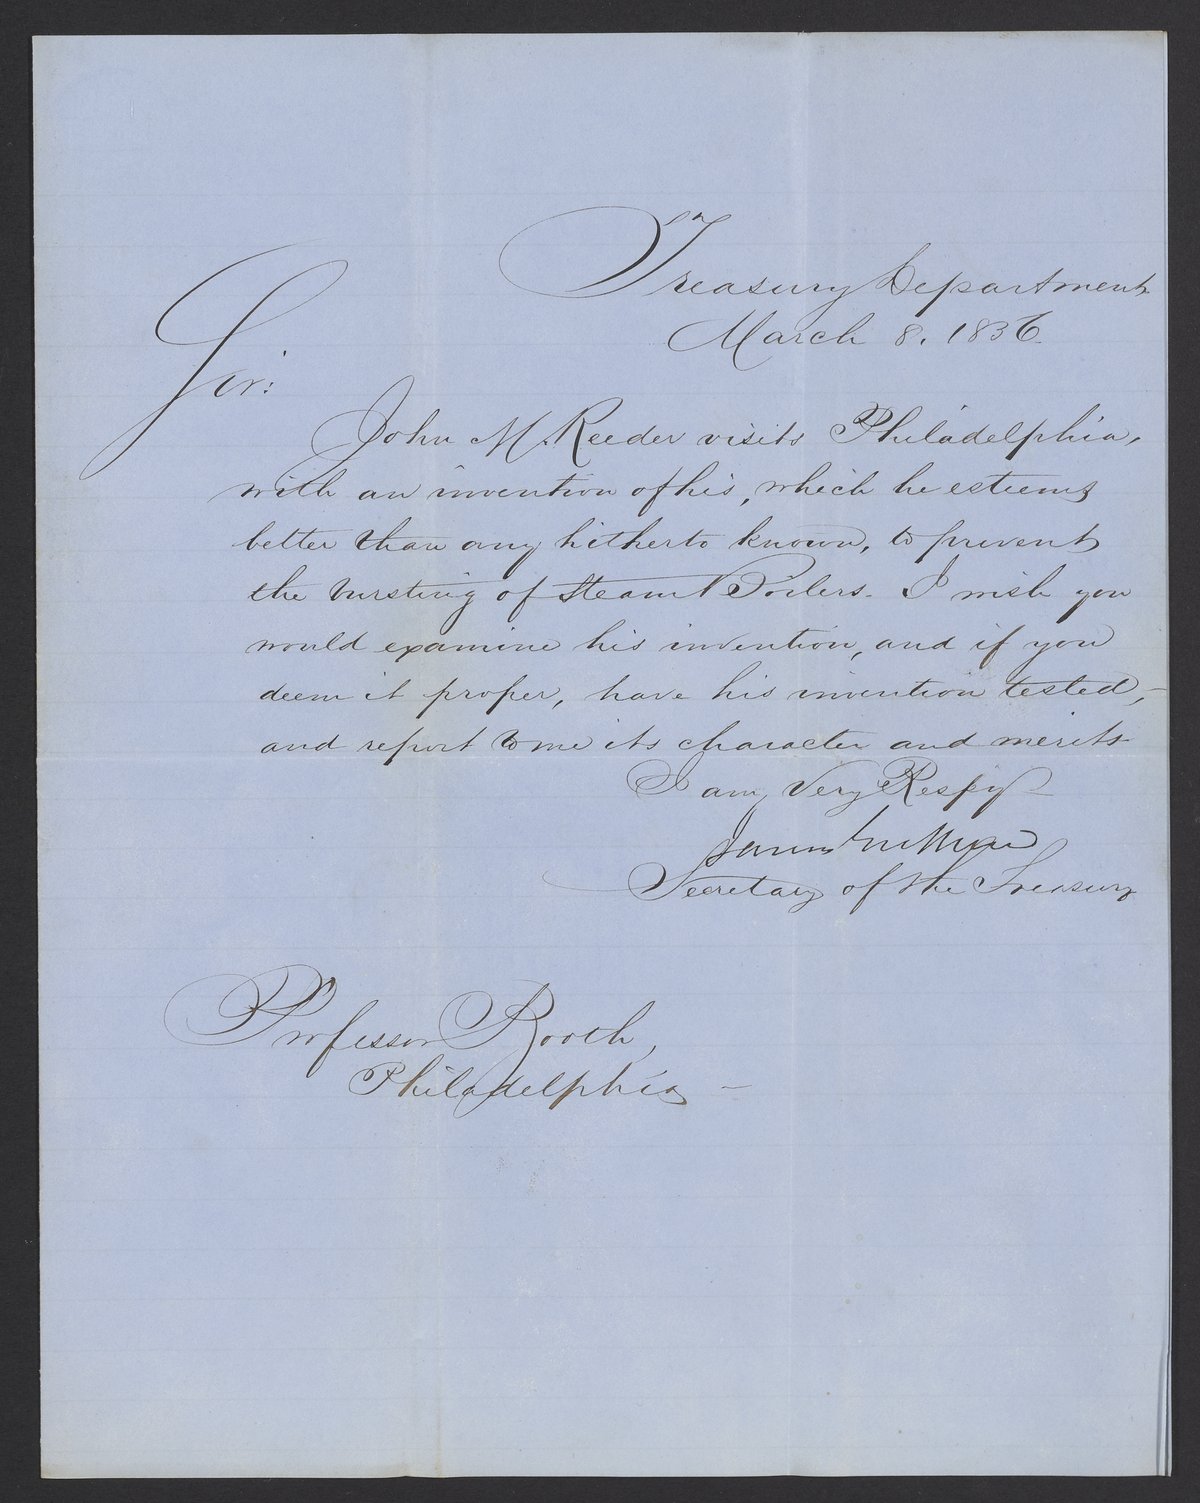 Treasury Department
March 8. 1836.
Sir:
John M. Reeder visits Philadelphia,
with an invention of his, which he esteems
better than any hitherto known, to prevent
the bursting of Steam Boilers. I wish you
would examine his invention, and if you
deem it proper, have his invention tested,
and report to me its character and merits
I am, Very Respy
James Guthrie
Secretary of the Treasury
Professor Booth,
Philadelphia